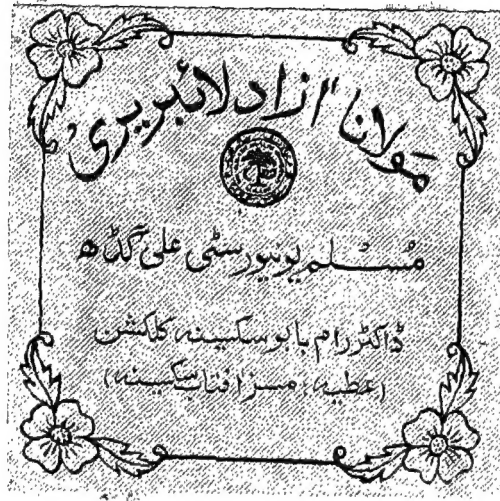 مولانا آزاد لائبریری
مُسلم یونیورسٹی علی گڈھ
ڈاکٹر رام بابو سکسینہ کلکشن
(عطیہ: مسز افتاب سکسینہ)